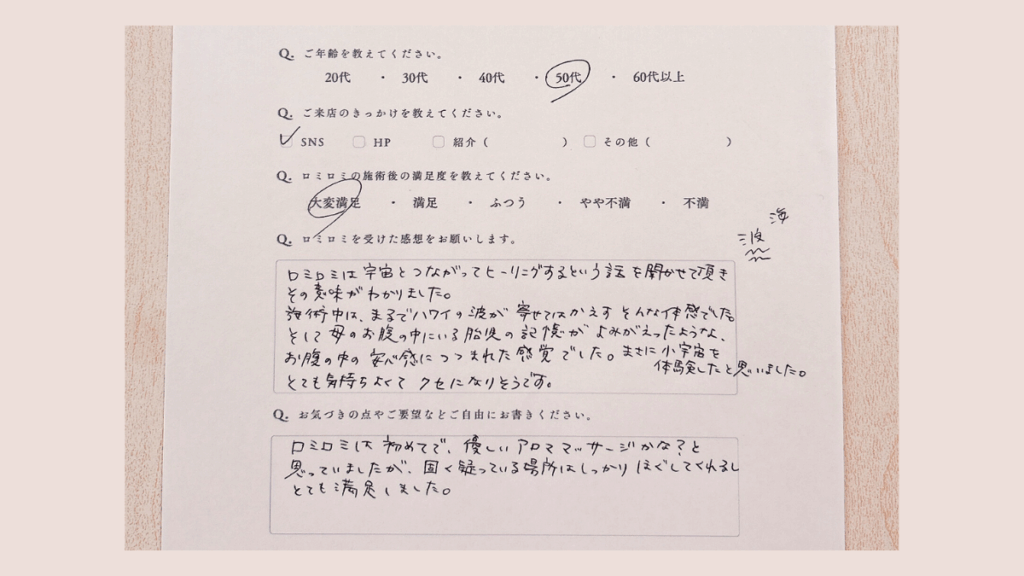 Q. ご年齢を教えてください。
20代 ・ 30代 ・ 40代 ・ 50代 ・ 60代以上
Q. ご来店のきっかけを教えてください。
SNS HP 紹介（ ） その他（ ）
Q. ロミロミの施術後の満足度を教えてください。
大変満足 ・ 満足 ・ ふつう ・ やや不満 ・ 不満
海
波
Q. ロミロミを受けた感想をお願いします。
ロミロミは宇宙とつながってヒーリングするという話を聞かせて頂き
その意味がわかりました。
施術中は、まるでハワイの波が寄せてはかえすそんな体感でした。
そして母のお腹の中にいる胎児の記憶がよみがえったような、
お腹の中の安心感につつまれた感覚でした。まさに小宇宙を
体験したと思いました。
とても気持ちよくてクセになりそうです。
Q. お気づきの点やご要望などご自由にお書きください。
ロミロミは初めてで、優しいアロママッサージかな？と
思っていましたが、固く疑っている場所はしっかりほぐしてくれるし
とても満足しました。